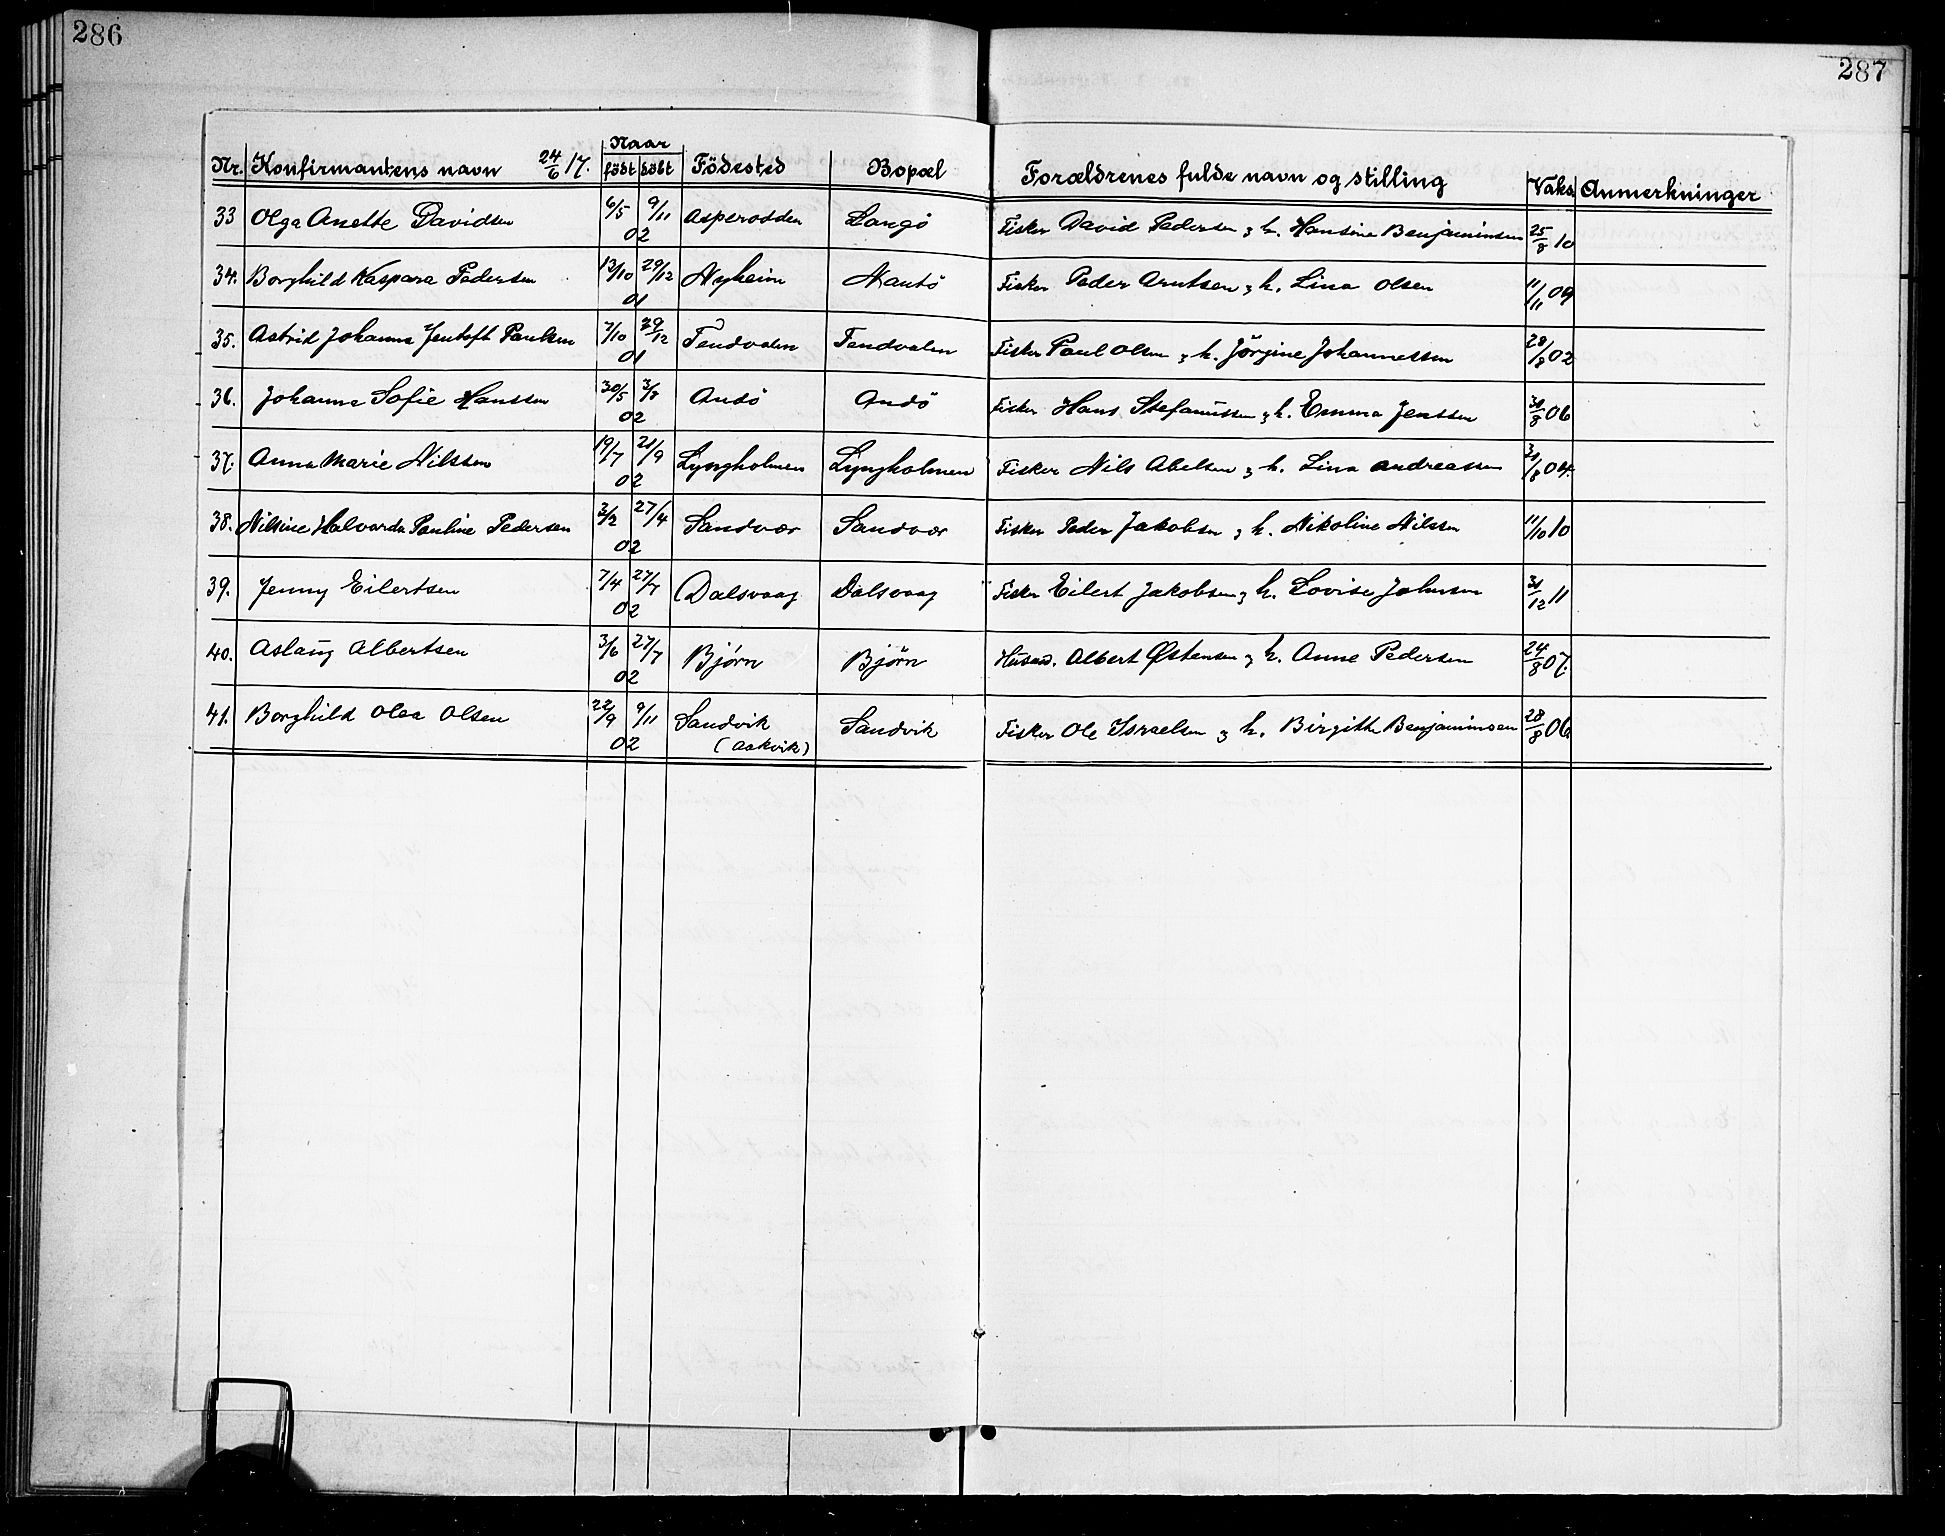 286
287
Nr. Konfirmantens navn 24/6 17. Naar født døbt Fødested Bopæl Forældrenes fulde navn og stilling Vaks. Anmerkninger
33 Olga Anette Davidsen 6/5 9/11 02 Asperodden Langö Fisker David Pedersen & h. Hansine Benjaminsen 25/8 10
34. Borghild Kaspara Pedersen 13/10 29/12 01 Nyheim Nautö Fisker Peder Arntsen & h. Lina Olsen 11/11 09
35. Astrid Johanna Jentoft Paulsen 7/10 29/12 01 Tendvalen Tendvalen Fisker Paul Olsen & h. Jörgine Johannessen 28/8 02
36. Johanna Sofie Hanssen 30/5 3/8 02 Andö Andö Fisker Hans Stefanussen & h. Emma Jenssen 31/8 06
37. Anna Marie Nilssen 19/7 21/9 02 Lyngholmen Lyngholmen Fisker Nils Abelsen & h. Lina Andreassen 31/8 04.
38. Nilsine Halvarda Pauline Pedersen 3/2 27/4 02 Sandvær Sandvær Fisker Peder Jakobsen & h. Nikoline Nilssen 11/10 10
39. Jenny Eilertsen 7/4 27/7 02 Dalsvaag Dalsvaag Fisker Eilert Jakobsen & h. Lovise Johnsen 31/12 11
40. Aslaug Albertsen 3/6 27/7 02 Bjørn Bjørn Husm. Albert Østensen & h. Anne Pedersen 24/8 07.
41. Borghild Olea Olsen 22/9 9/11 02 Sandvik (Aakvik) Sandvik Fisker Ole Israelsen & h. Birgitte Benjaminsen 28/8 06